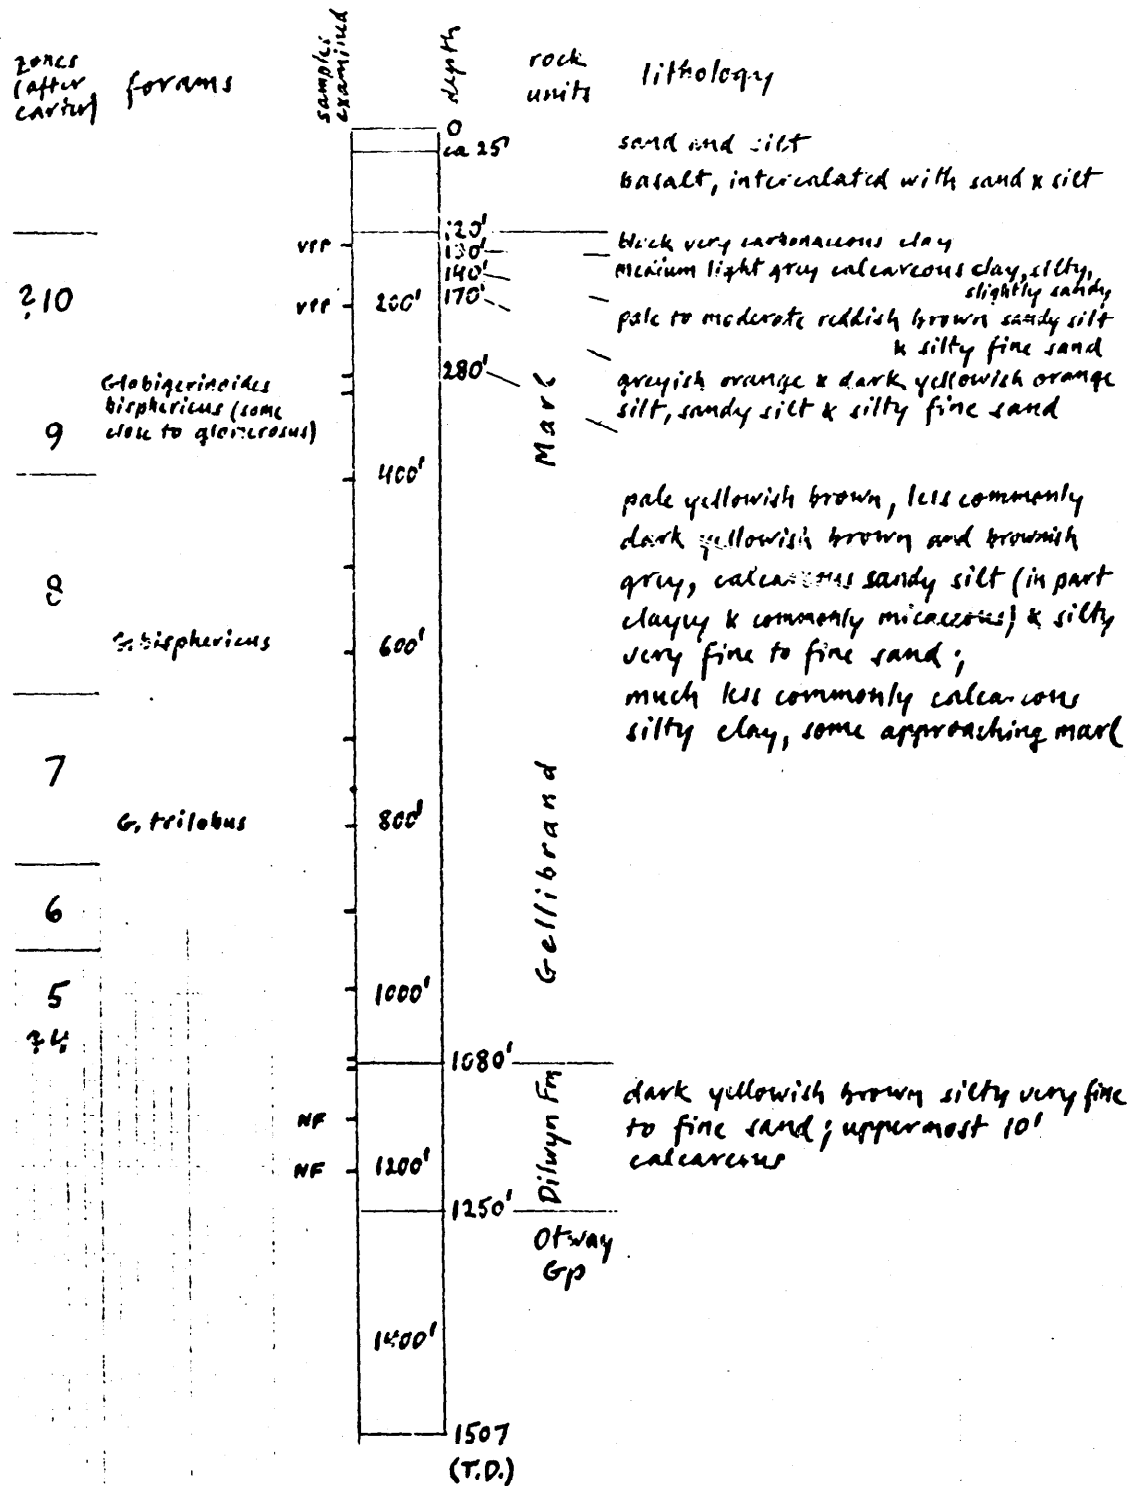 zones
(after
carter)
forams
samples
examined
depth
rock
units
lithology
0
ca 25'
120'
130'
140'
170'
200'
280'
400'
600'
800'
1000'
1080'
1200'
1250'
1400'
1507
(T.D.)
?10
9
8
7
6
5
?4
Globigerinoides
bisphericus (some
close to glomerosus)
G. bisphericus
G. trilobus
vrr
vrr
NF
NF
Gellibrand Marl
Dilwyn Fm
Otway
Gp
sand and silt
basalt, intercalated with sand & silt
black very carbonaceous clay
medium light grey calcareous clay, silty,
slightly sandy
pale to moderate reddish brown sandy silt
& silty fine sand
greyish orange & dark yellowish orange
silt, sandy silt & silty fine sand
pale yellowish brown, less commonly
dark yellowish brown and brownish
grey, calcareous sandy silt (in part
clayey & commonly micaceous) & silty
very fine to fine sand;
much less commonly calcareous
silty clay, some approaching marl
dark yellowish brown silty very fine
to fine sand; uppermost 10'
calcareous